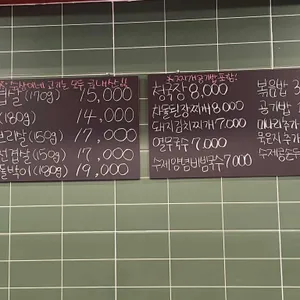 고기는 모두 국내산!!
겹살 (170g) 15,000
(180g) 14,000
(150g) 17,000
겹살 (150g) 17,000
(180g) 19,000
청국장 8,000
차돌된장찌개 8,000
돼지김치찌개 7,000
열무국수 7,000
수제양념비빔국수 7,000
볶음밥 3
공기밥
미나리추가
묵은지추가
수제쌈